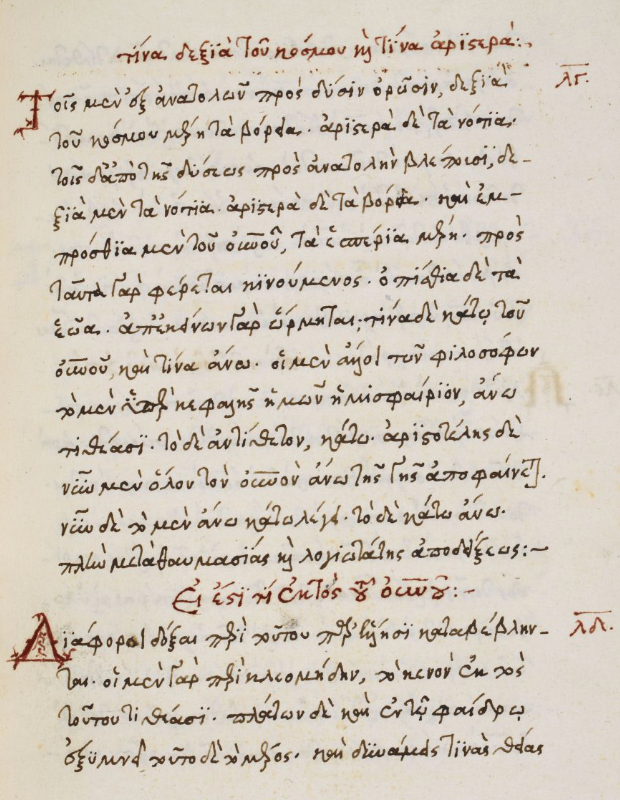 τίνα δεξϊὰ τοῦ κόσμου κὶ τίνα ἀρϊστερὰ:
λγ.
Τοῖς μὲν ἐξ ἀνατολῶν πρὸς δύσιν ὁρῶσϊν, δεξϊὰ
τοῦ κόσμου μέρη τὰ βόρεια. ἀρϊστερὰ δὲ τὰ νότϊα.
τοῖς δ' ἀπὸ τῆς δύσεως πρὸς ἀνατολὴν βλέπουσϊ, δε-
ξϊὰ μὲν τὰ νότϊα. ἀρϊστερὰ δὲ τὰ βόρεια. καὶ ἐμ-
πρόσθϊα μὲν τοῦ οὐνοῦ, τὰ ἑσπέρϊα μέρη. πρὸς
ταῦτα γὰρ φέρεται κϊνούμενος. ὀπίσθια δὲ τὰ
ἑῶα. ἀπ' ἐκείνων γὰρ ὥρμηται; τίνα δὲ κάτω τοῦ
οὐνοῦ, καὶ τίνα ἄνω. οἱ μὲν ἄλλοι τῶν φϊλοσόφων
τὸ μὲν ὑπὲρ κεφαλῆς ἡμῶν ἡμισφαίρϊον, ἄνω
τιθέασϊ. τὸ δὲ ἀντίθετον, κάτω. ἀρϊστοτέλης δὲ
νῦν μὲν ὅλον τὸν οὐνὸν ἄνω τῆς γῆς ἀποφαίνεται.
νῦν δὲ τὸ μὲν ἄνω κάτω λέγει. τὸ δὲ κάτω ἄνω.
πλὴν μετὰ θαυμασίας κὶ λογιωτάτης ἀποδείξεως:~
Εἰ ἔστϊ τί ἐκτὸς τοῦ οὐνοῦ:-
λδ.
Δϊάφοροι δόξαι περὶ τούτου παρ' ἕλλησϊ καταβέβλην-
ται. οἱ μὲν γὰρ περὶ κλεομήδην, τὸ κενὸν ἐκτὸς
τούτου τϊθέασϊ. πλάτων δὲ καὶ ἐν τῷ φαίδρω
ἐξϋμνεῖ τοῦτο δὲ τὸ μέρος. καὶ δυνάμεις τϊνὰς θείας